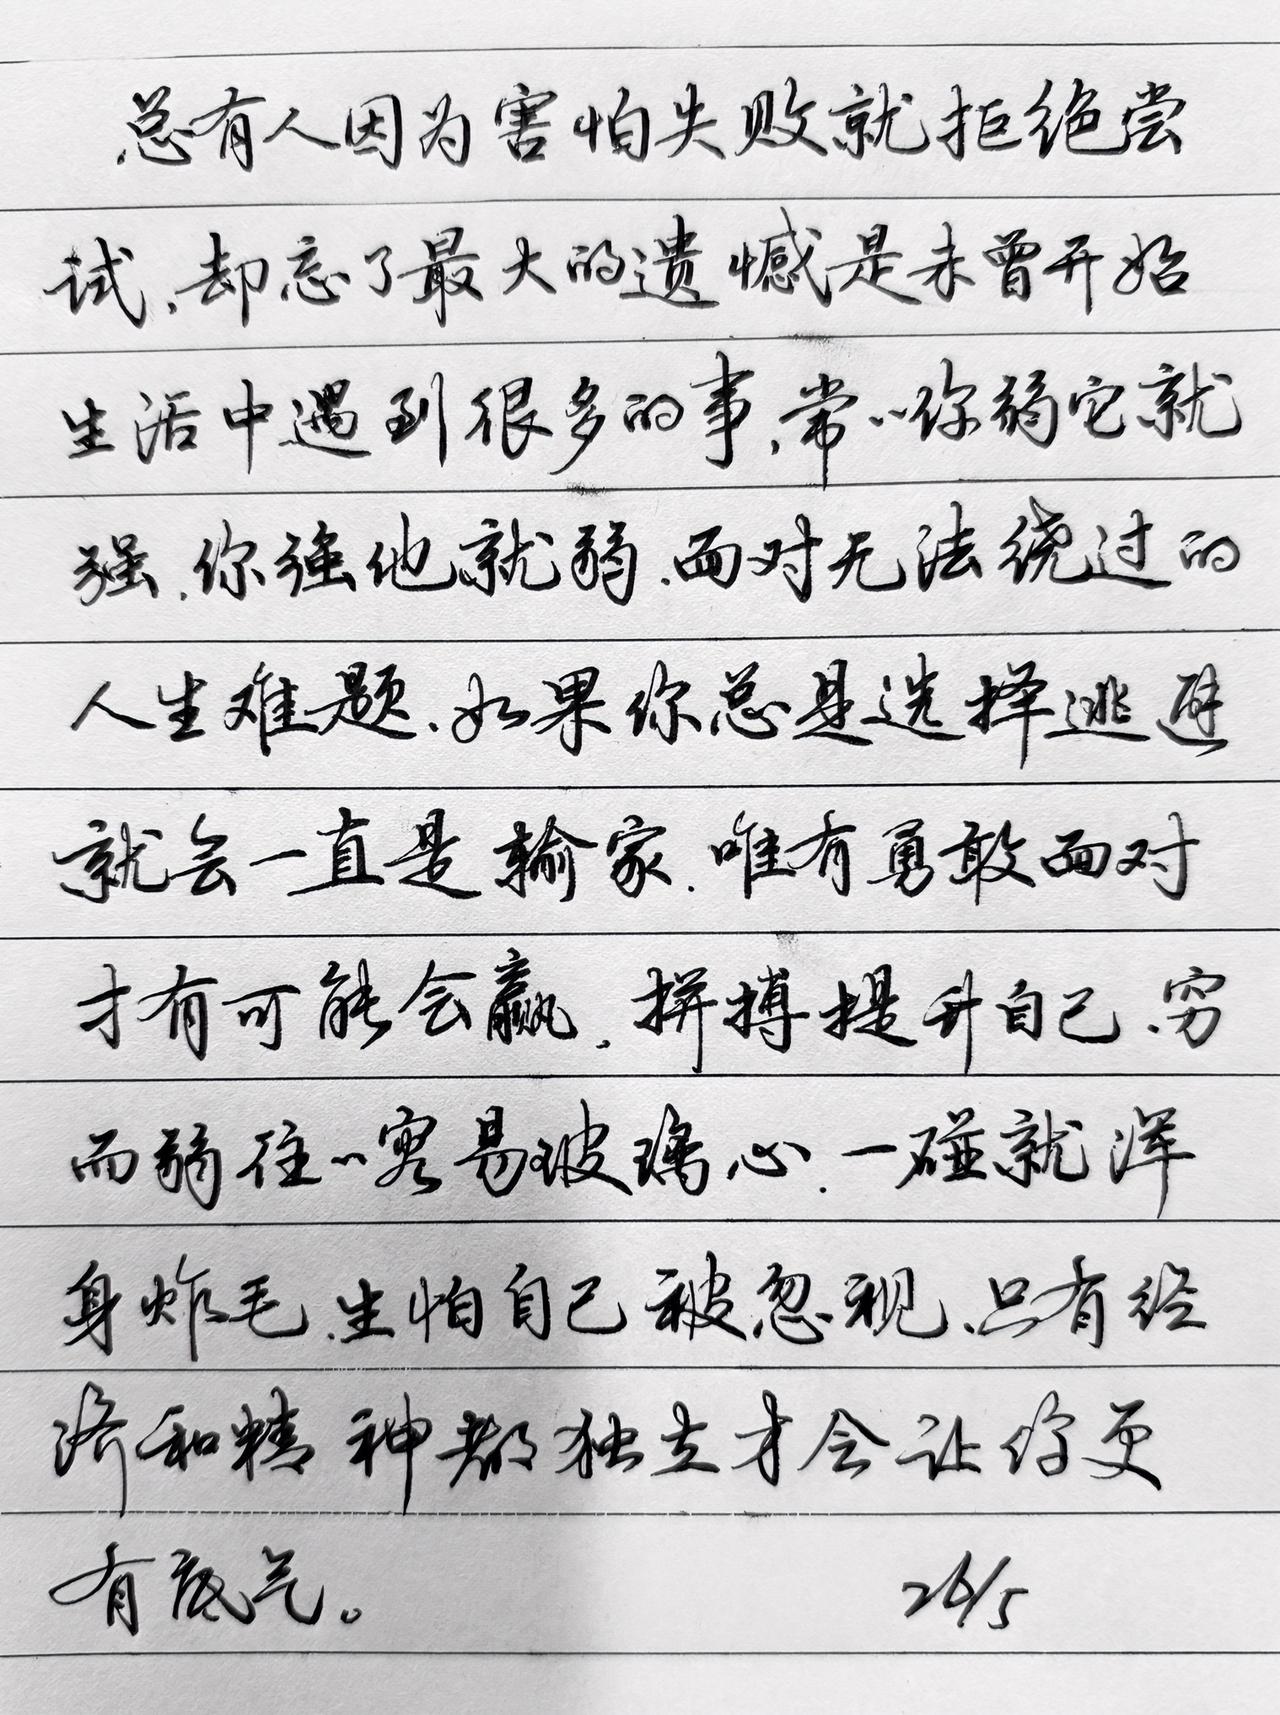 总有人因为害怕失败就拒绝尝
试,却忘了最大的遗憾是未曾开始
生活中遇到很多的事,常〃你弱它就
强,你强他就弱,面对无法绕过的
人生难题,如果你总是选择逃避
就会一直是输家,唯有勇敢面对
才有可能会赢,拼搏提升自己,穷
而弱往〃容易玻璃心,一碰就浑
身炸毛,生怕自己被忽视,只有经
济和精神都独立才会让你更
有底气。 26/5